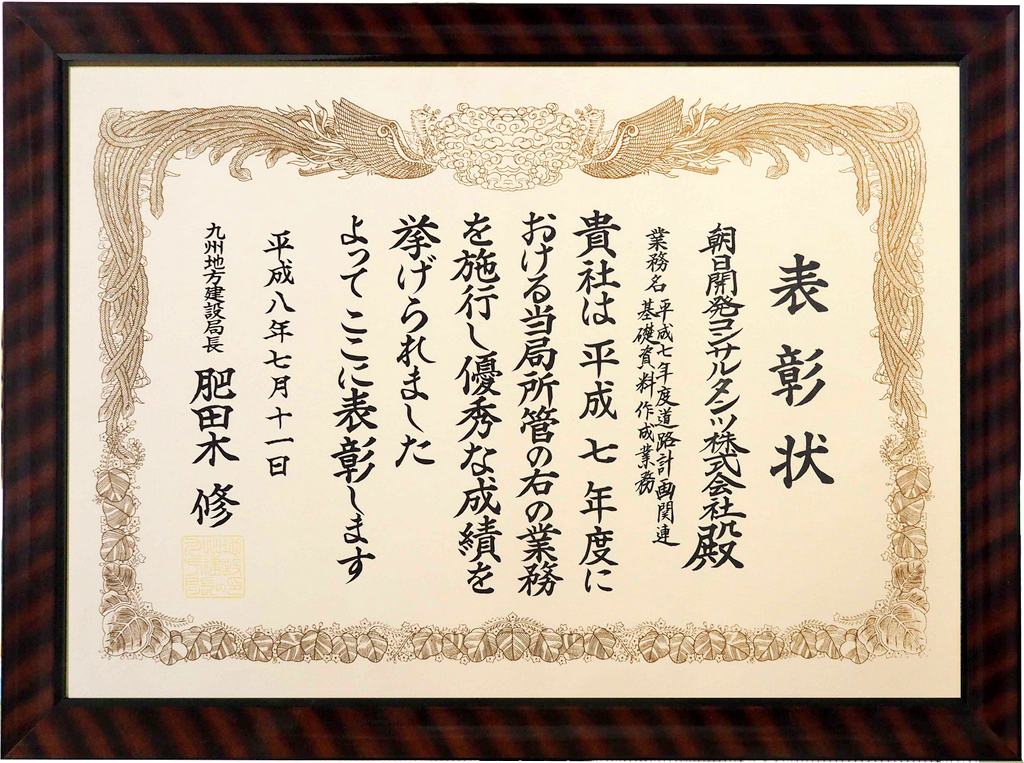 表彰状
朝日開発コンサルタンツ株式会社殿
業務名 平成七年度道路計画関連
基礎資料作成業務
貴社は平成七年度に
おける当局所管の右の業務
を施行し優秀な成績を
挙げられました
よってここに表彰します
平成八年七月十一日
九州地方建設局長 肥田木 修